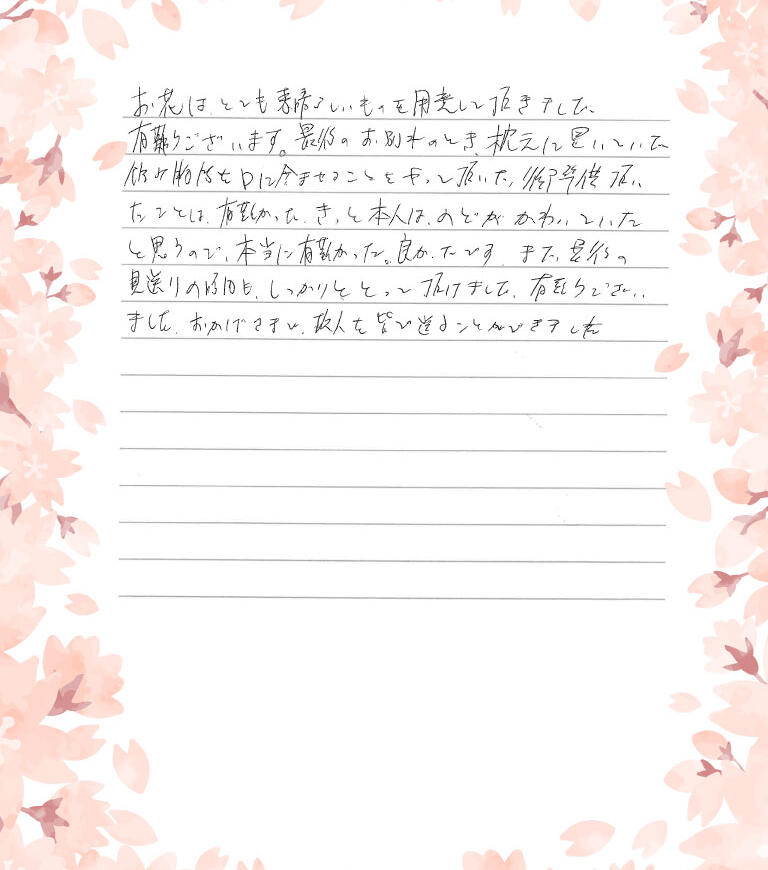 お花は、とても素晴らしいものを用意して頂きました、
有難うございます。最後のお別れのとき枕元に置いていた
飲み物 を口に含ませることをやって頂いた、 準備頂い
たことは、有難かった、きっと本人は、のどがかわいていた
と思うので、本当に有難かった。良かったです、また、最後の
見送りの時間も、しっかりととって頂けました、有難うござい
ました、おかげさまで、故人を皆で送ることができました